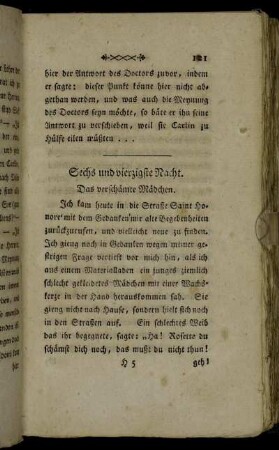 121
hier der Antwort des Doctors zuvor, indem
er sagte: dieser Punkt könne hier nicht abgethan
werden, und was auch die Meynung
des Doctors seyn möchte, so bäte er ihn seine
Antwort zu verschieben, weil sie Carlin zu
Hülfe eilen müßten . . .
Sechs und vierzigste Nacht.
Das verschämte Mädchen.
Ich kam heute in die Strasse Saint Honore
mit dem Gedanken mir alte Begebenheiten
zurückzurufen, und vielleicht neue zu finden.
Ich gieng noch in Gedanken wegen meiner gestrigen
Frage vertieft vor mich hin, als ich
aus einem Materialladen ein junges ziemlich
schlecht gekleidetes Mädchen mit einer Wachskerze
in der Hand herauskommen sah. Sie
gieng nicht nach Hause, sondern hielt sich noch
in den Straßen auf. Ein schlechtes Weib
das ihr begegnete, sagte: „Ha! Rosette du
schämst dich noch, das mußt du nicht thun!
H 5
geh!